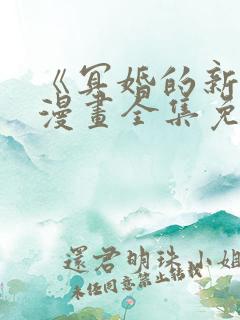 《冥婚的新
漫畫全集免
還君明珠小姐
未經同意禁止轉載